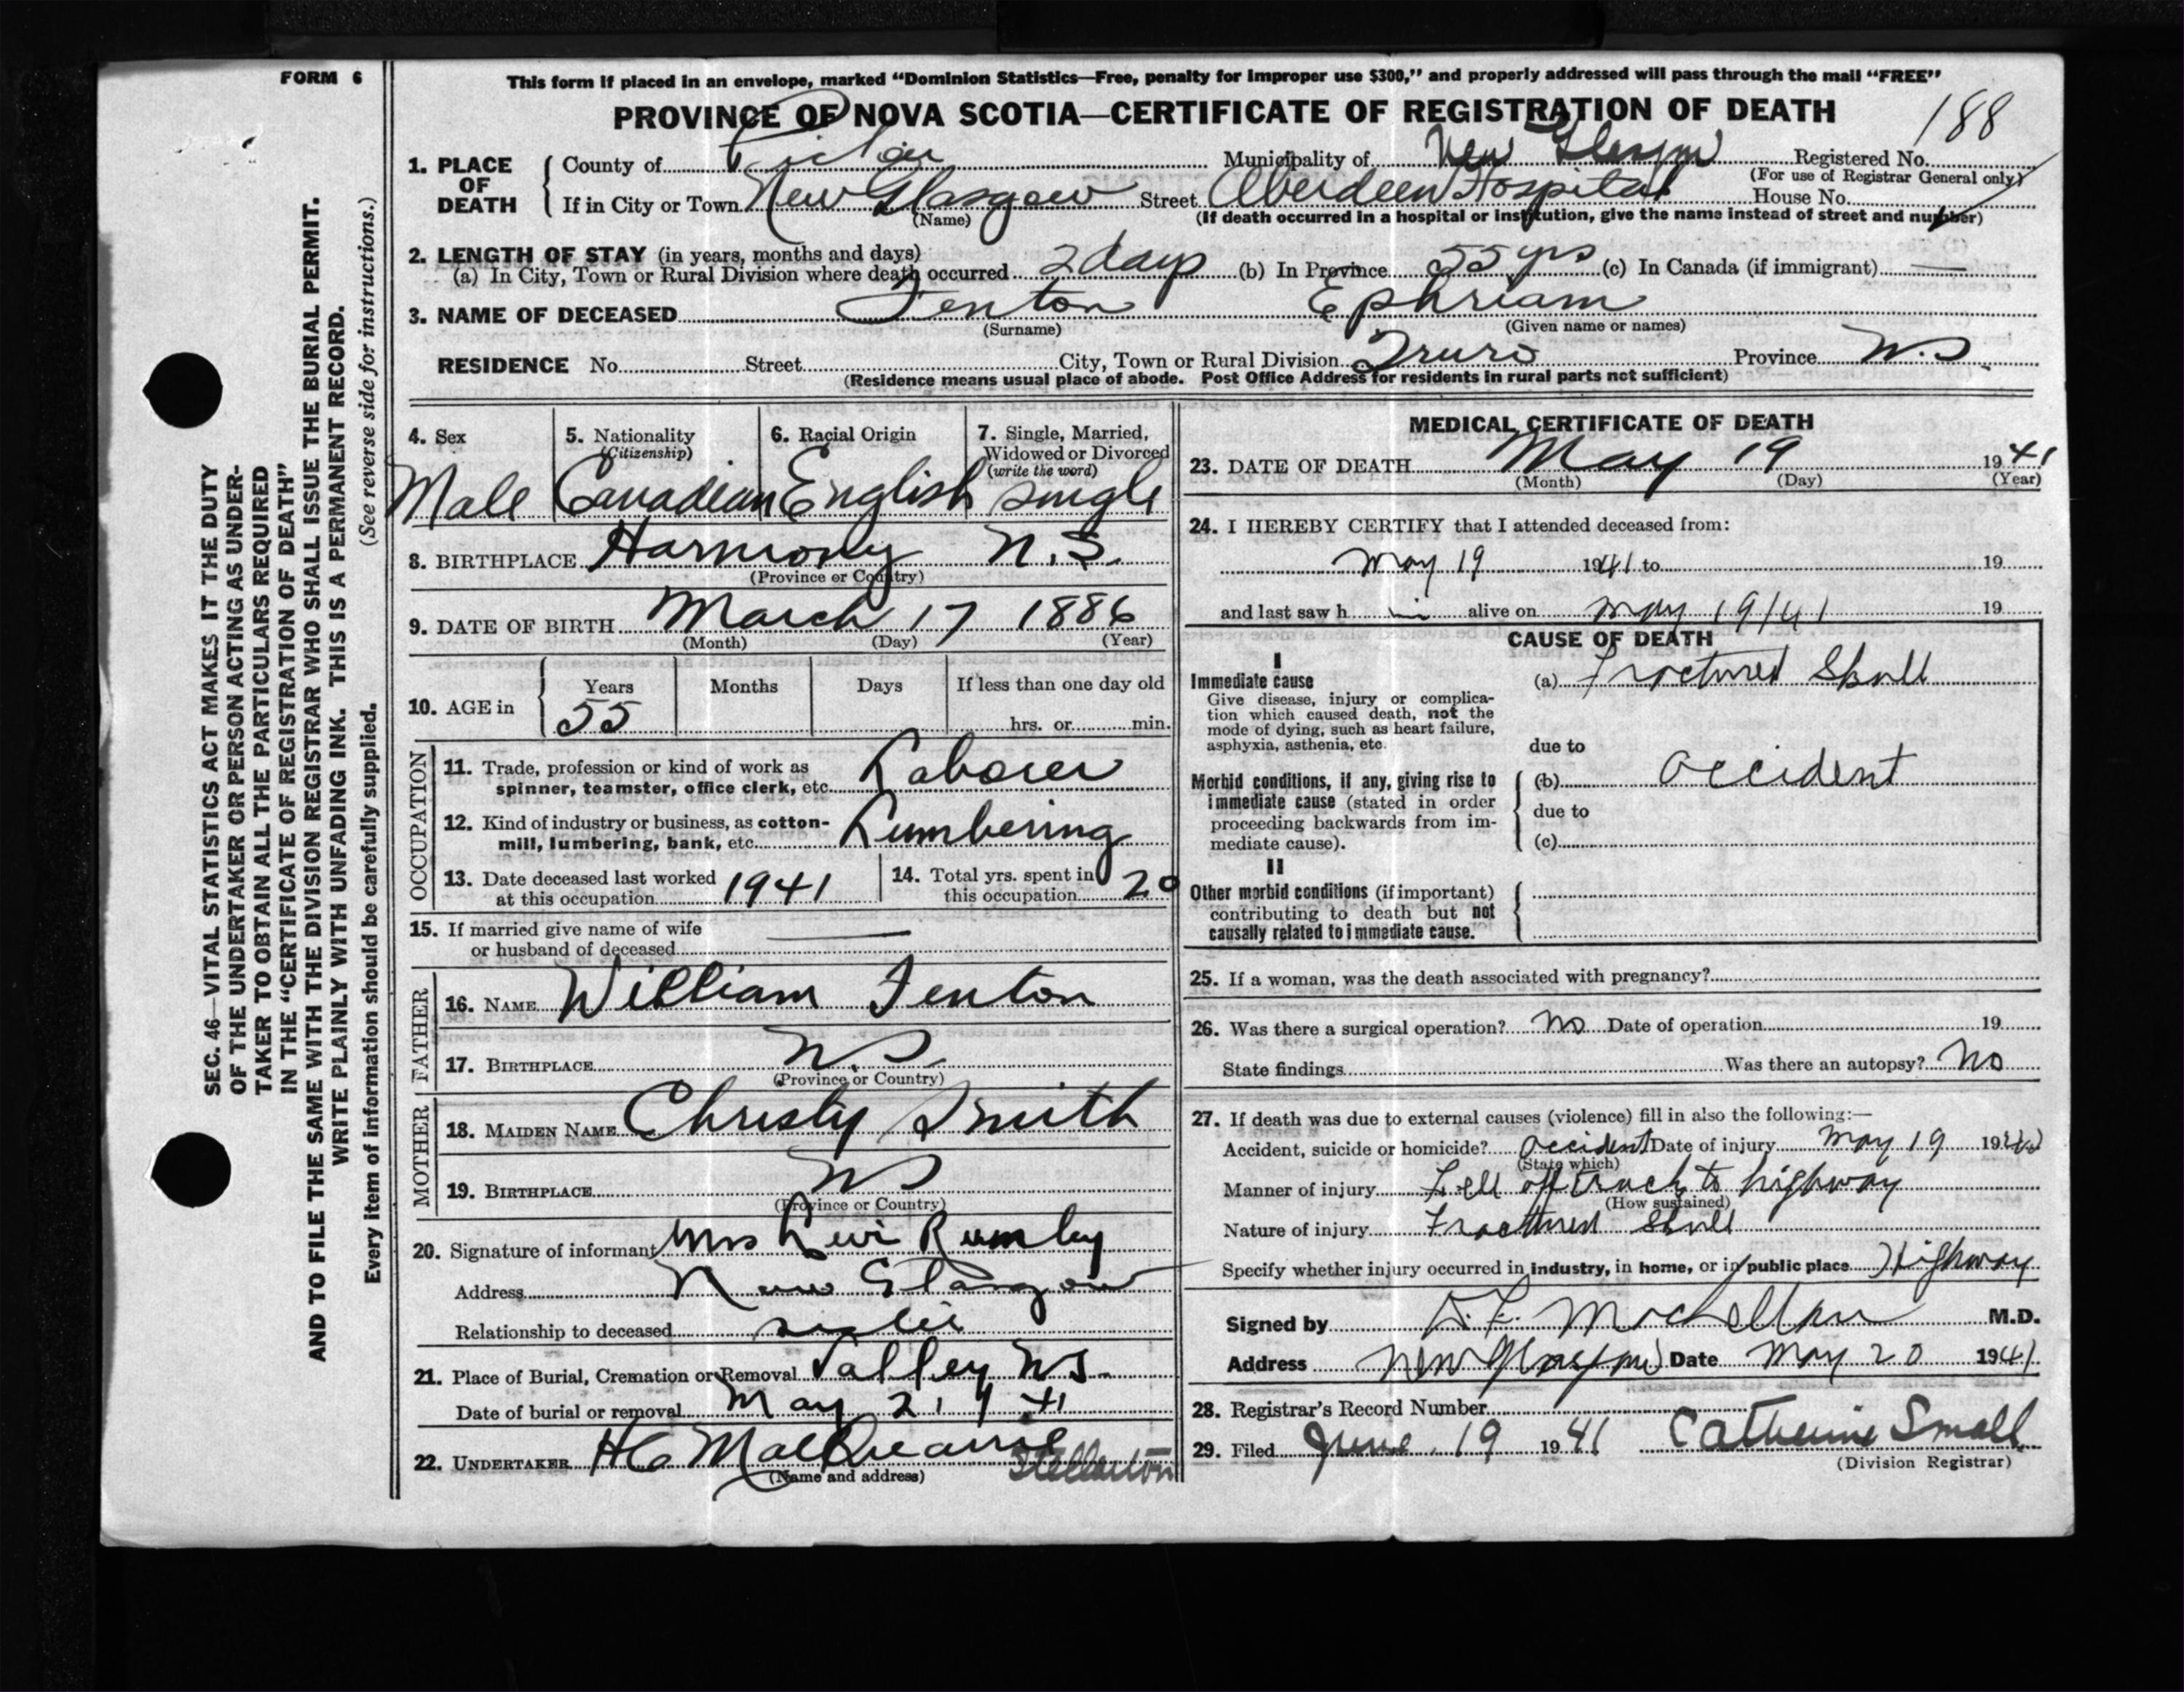 FORM 6
This form if placed in an envelope, marked “Dominion Statistics—Free, penalty for improper use $300,” and properly addressed will pass through the mail “FREE”
PROVINCE OF NOVA SCOTIA—CERTIFICATE OF REGISTRATION OF DEATH
188
1. PLACE OF DEATH
County of Pictou Municipality of New Glasgow Registered No.
(For use of Registrar General only)
If in City or Town New Glasgow Street Aberdeen Hospital House No.
(Name) (If death occurred in a hospital or institution, give the name instead of street and number)
2. LENGTH OF STAY (in years, months and days)
(a) In City, Town or Rural Division where death occurred 2 days (b) In Province 55 yrs (c) In Canada (if immigrant) —
3. NAME OF DECEASED Fenton Ephriam
(Surname) (Given name or names)
RESIDENCE No. Street City, Town or Rural Division Truro Province N.S.
(Residence means usual place of abode. Post Office Address for residents in rural parts not sufficient)
4. Sex
Male
5. Nationality
(Citizenship)
Canadian
6. Racial Origin
English
7. Single, Married,
Widowed or Divorced
(write the word)
single
8. BIRTHPLACE Harmony N.S.
(Province or Country)
9. DATE OF BIRTH March 17 1886
(Month) (Day) (Year)
10. AGE in
Years Months Days If less than one day old
55 hrs. or min.
OCCUPATION
11. Trade, profession or kind of work as
spinner, teamster, office clerk, etc. Laborer
12. Kind of industry or business, as cotton-
mill, lumbering, bank, etc. Lumbering
13. Date deceased last worked
at this occupation 1941
14. Total yrs. spent in
this occupation 20
15. If married give name of wife
or husband of deceased —
FATHER
16. NAME William Fenton
17. BIRTHPLACE N.S.
(Province or Country)
MOTHER
18. MAIDEN NAME Christy Smith
19. BIRTHPLACE NS
(Province or Country)
20. Signature of informant Mrs Levi Rumley
Address New Glasgow
Relationship to deceased sister
21. Place of Burial, Cremation or Removal Valley N.S.
Date of burial or removal May 21, 41
22. UNDERTAKER H C Stellarton
(Name and address)
MEDICAL CERTIFICATE OF DEATH
23. DATE OF DEATH May 19 1941
(Month) (Day) (Year)
24. I HEREBY CERTIFY that I attended deceased from:
May 19 1941 to 19
and last saw h im alive on May 19/41 19
CAUSE OF DEATH
I
Immediate cause
Give disease, injury or complica-
tion which caused death, not the
mode of dying, such as heart failure,
asphyxia, asthenia, etc.
(a) Fractured Skull
due to
Morbid conditions, if any, giving rise to
immediate cause (stated in order
proceeding backwards from im-
mediate cause).
(b) accident
due to
(c)
II
Other morbid conditions (if important)
contributing to death but not
causally related to immediate cause.
25. If a woman, was the death associated with pregnancy?
26. Was there a surgical operation? No Date of operation 19
State findings Was there an autopsy? No
27. If death was due to external causes (violence) fill in also the following:—
Accident, suicide or homicide? accident Date of injury May 19 19
(State which)
Manner of injury Fell off truck to highway
(How sustained)
Nature of injury Fractured Skull
Specify whether injury occurred in industry, in home, or in public place Highway
Signed by McLellan M.D.
Address New Glasgow Date May 20 1941
28. Registrar's Record Number
29. Filed June 19 1941 Catherine Small
(Division Registrar)
SEC. 46—VITAL STATISTICS ACT MAKES IT THE DUTY
OF THE UNDERTAKER OR PERSON ACTING AS UNDER-
TAKER TO OBTAIN ALL THE PARTICULARS REQUIRED
IN THE “CERTIFICATE OF REGISTRATION OF DEATH”
AND TO FILE THE SAME WITH THE DIVISION REGISTRAR WHO SHALL ISSUE THE BURIAL PERMIT.
WRITE PLAINLY WITH UNFADING INK. THIS IS A PERMANENT RECORD.
(See reverse side for instructions.)
Every item of information should be carefully supplied.